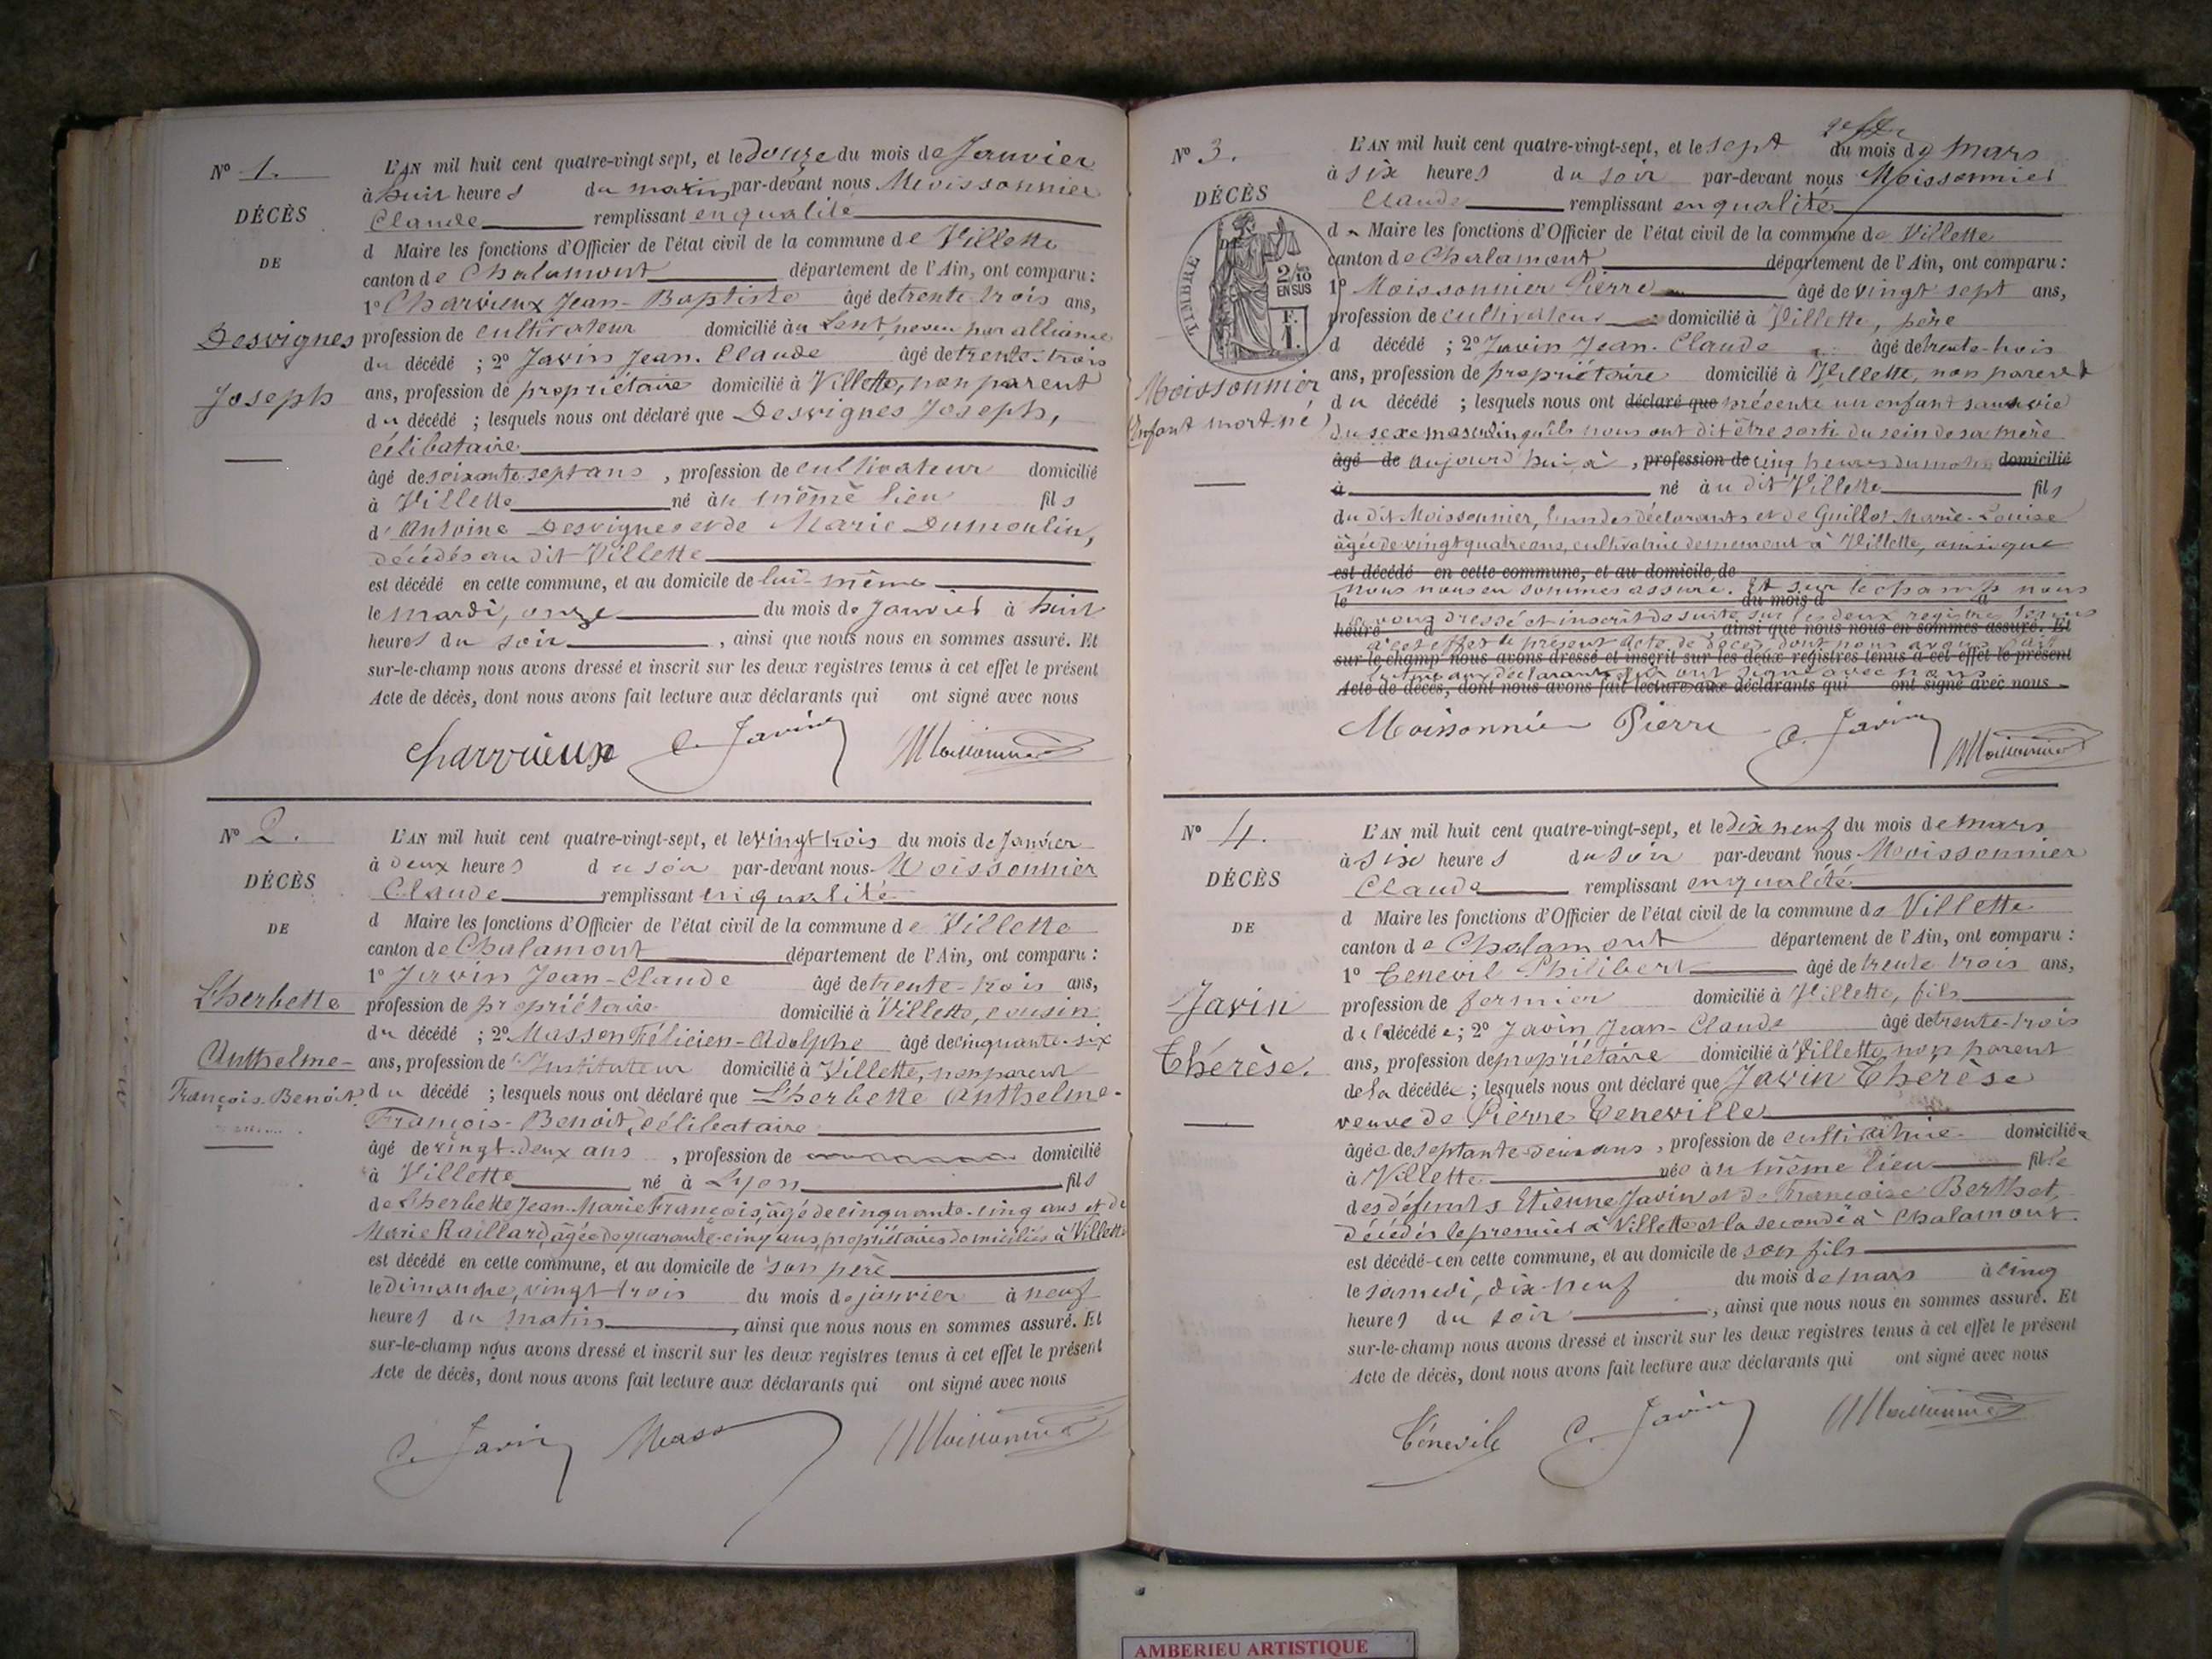 N° 1.
DÉCÈS
DE
Desvignes
Joseph
L'AN mil huit cent quatre-vingt sept, et le douze du mois de Janvier
à huit heures du matin, par-devant nous Moissonnier
Claude remplissant en qualité
d Maire les fonctions d'Officier de l'état civil de la commune de Villette
canton de Chalamont département de l'Ain, ont comparu :
1° Charvieux Jean-Baptiste âgé de trente trois ans,
profession de cultivateur domicilié à Lent, neveu par alliance
du décédé ; 2° Javin Jean-Claude âgé de trente-trois
ans, profession de propriétaire domicilié à Villette, non parent
du décédé ; lesquels nous ont déclaré que Desvignes Joseph,
célibataire
âgé de soixante-sept ans , profession de cultivateur domicilié
à Villette né au même lieu fils
d'Antoine Desvignes et de Marie Dumoulin,
décédés au dit Villette
est décédé en cette commune, et au domicile de lui-même
le mardi, onze du mois de Janvier à huit
heures du soir , ainsi que nous nous en sommes assuré. Et
sur-le-champ nous avons dressé et inscrit sur les deux registres tenus à cet effet le présent
Acte de décès, dont nous avons fait lecture aux déclarants qui ont signé avec nous
Charvieux C. Javin Moissonnier
N° 2.
DÉCÈS
DE
L'herbette
Anthelme-
François-Benoit
L'AN mil huit cent quatre-vingt-sept, et le vingt trois du mois de Janvier
à deux heures du soir par-devant nous Moissonnier
Claude remplissant en qualité
d Maire les fonctions d'Officier de l'état civil de la commune de Villette
canton de Chalamont département de l'Ain, ont comparu :
1° Javin Jean-Claude âgé de trente-trois ans,
profession de propriétaire domicilié à Villette, cousin
du décédé ; 2° Masson Félicien-Adolphe âgé de cinquante-six
ans, profession de Instituteur domicilié à Villette, non parent
du décédé ; lesquels nous ont déclaré que L'herbette Anthelme-
François-Benoit, célibataire
âgé de vingt-deux ans , profession de domicilié
à Villette né à Lyon fils
de L'herbette Jean-Marie François, âgé de cinquante-cinq ans et de
Marie Raillard, âgée de quarante-cinq ans, propriétaires domiciliés à Villette
est décédé en cette commune, et au domicile de son père
le dimanche, vingt-trois du mois de janvier à neuf
heures du matin , ainsi que nous nous en sommes assuré. Et
sur-le-champ nous avons dressé et inscrit sur les deux registres tenus à cet effet le présent
Acte de décès, dont nous avons fait lecture aux déclarants qui ont signé avec nous
C. Javin Masson Moissonnier
N° 3.
DÉCÈS
TIMBRE
2/10
EN SUS
F.
1.
Moissonnier
Enfant mort né
L'AN mil huit cent quatre-vingt-sept, et le sept du mois de mars
à six heures du soir par-devant nous Moissonnier
Claude remplissant en qualité
d Maire les fonctions d'Officier de l'état civil de la commune de Villette
canton de Chalamont département de l'Ain, ont comparu :
1° Moissonnier Pierre âgé de vingt sept ans,
profession de cultivateur domicilié à Villette, père
d décédé ; 2° Javin Jean-Claude âgé de trente-trois
ans, profession de propriétaire domicilié à Villette, non parent
du décédé ; lesquels nous ont déclaré que présenté un enfant sans vie
du sexe masculin qu'ils nous ont dit être sorti du sein de sa mère
âgé de aujourd'hui à , profession de cinq heures du matin domicilié
à né au dit Villette fils
du dit Moissonnier, l'un des déclarants et de Guillot Marie-Louise
âgée de vingt quatre ans, cultivatrice demeurant à Villette, ainsi que
est décédé en cette commune, et au domicile de
nous nous en sommes assuré. Et sur le champ nous
le du mois d à
avons dressé et inscrit de suite sur les deux registres tenus
heure d , ainsi que nous nous en sommes assuré. Et
à cet effet le présent acte de décès dont nous avons fait
sur-le-champ nous avons dressé et inscrit sur les deux registres tenus à cet effet le présent
lecture aux déclarants qui ont signé avec nous
Acte de décès, dont nous avons fait lecture aux déclarants qui ont signé avec nous
Moissonnier Pierre C. Javin Moissonnier
N° 4.
DÉCÈS
DE
Javin
Thérèse.
L'AN mil huit cent quatre-vingt-sept, et le dix neuf du mois de mars
à six heures du soir par-devant nous Moissonnier
Claude remplissant en qualité
d Maire les fonctions d'Officier de l'état civil de la commune de Villette
canton de Chalamont département de l'Ain, ont comparu :
1° Tenevil Philibert âgé de trente trois ans,
profession de fermier domicilié à Villette, fils
de la décédée ; 2° Javin Jean-Claude âgé de trente-trois
ans, profession de propriétaire domicilié à Villette, non parent
de la décédée ; lesquels nous ont déclaré que Javin Thérèse
veuve de Pierre Teneville
âgée de septante-deux ans , profession de cultivatrice domiciliée
à Villette née au même lieu fille
des défunts Etienne Javin et de Françoise Berthet,
décédés le premier à Villette et la seconde à Chalamont.
est décédée en cette commune, et au domicile de son fils
le samedi, dix-neuf du mois de mars à cinq
heures du soir , ainsi que nous nous en sommes assuré. Et
sur-le-champ nous avons dressé et inscrit sur les deux registres tenus à cet effet le présent
Acte de décès, dont nous avons fait lecture aux déclarants qui ont signé avec nous
Ténevile C. Javin Moissonnier
AMBERIEU ARTISTIQUE